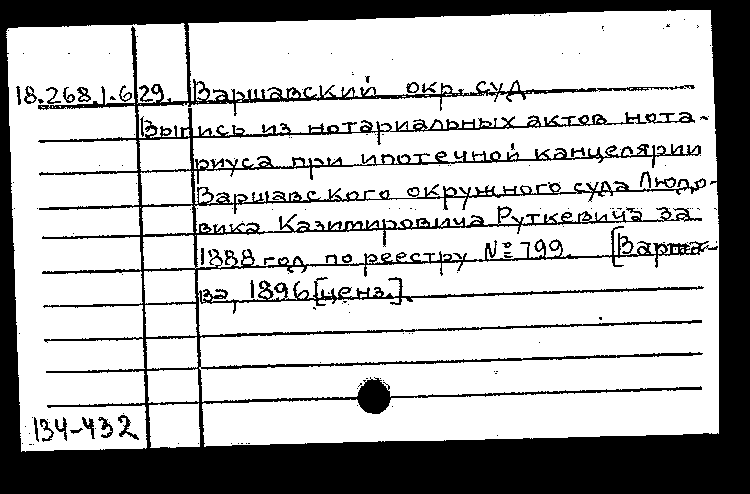 18.268.1.629. Варшавский окр. суд
Выпись из нотариальных актов нота-
риуса при ипотечной канцелярии
Варшавского окружного суда Людо-
вика Казимировича Руткевича за
1888 год по реестру № 799. [Варша-
ва, 1896 [ценз.].
134-432